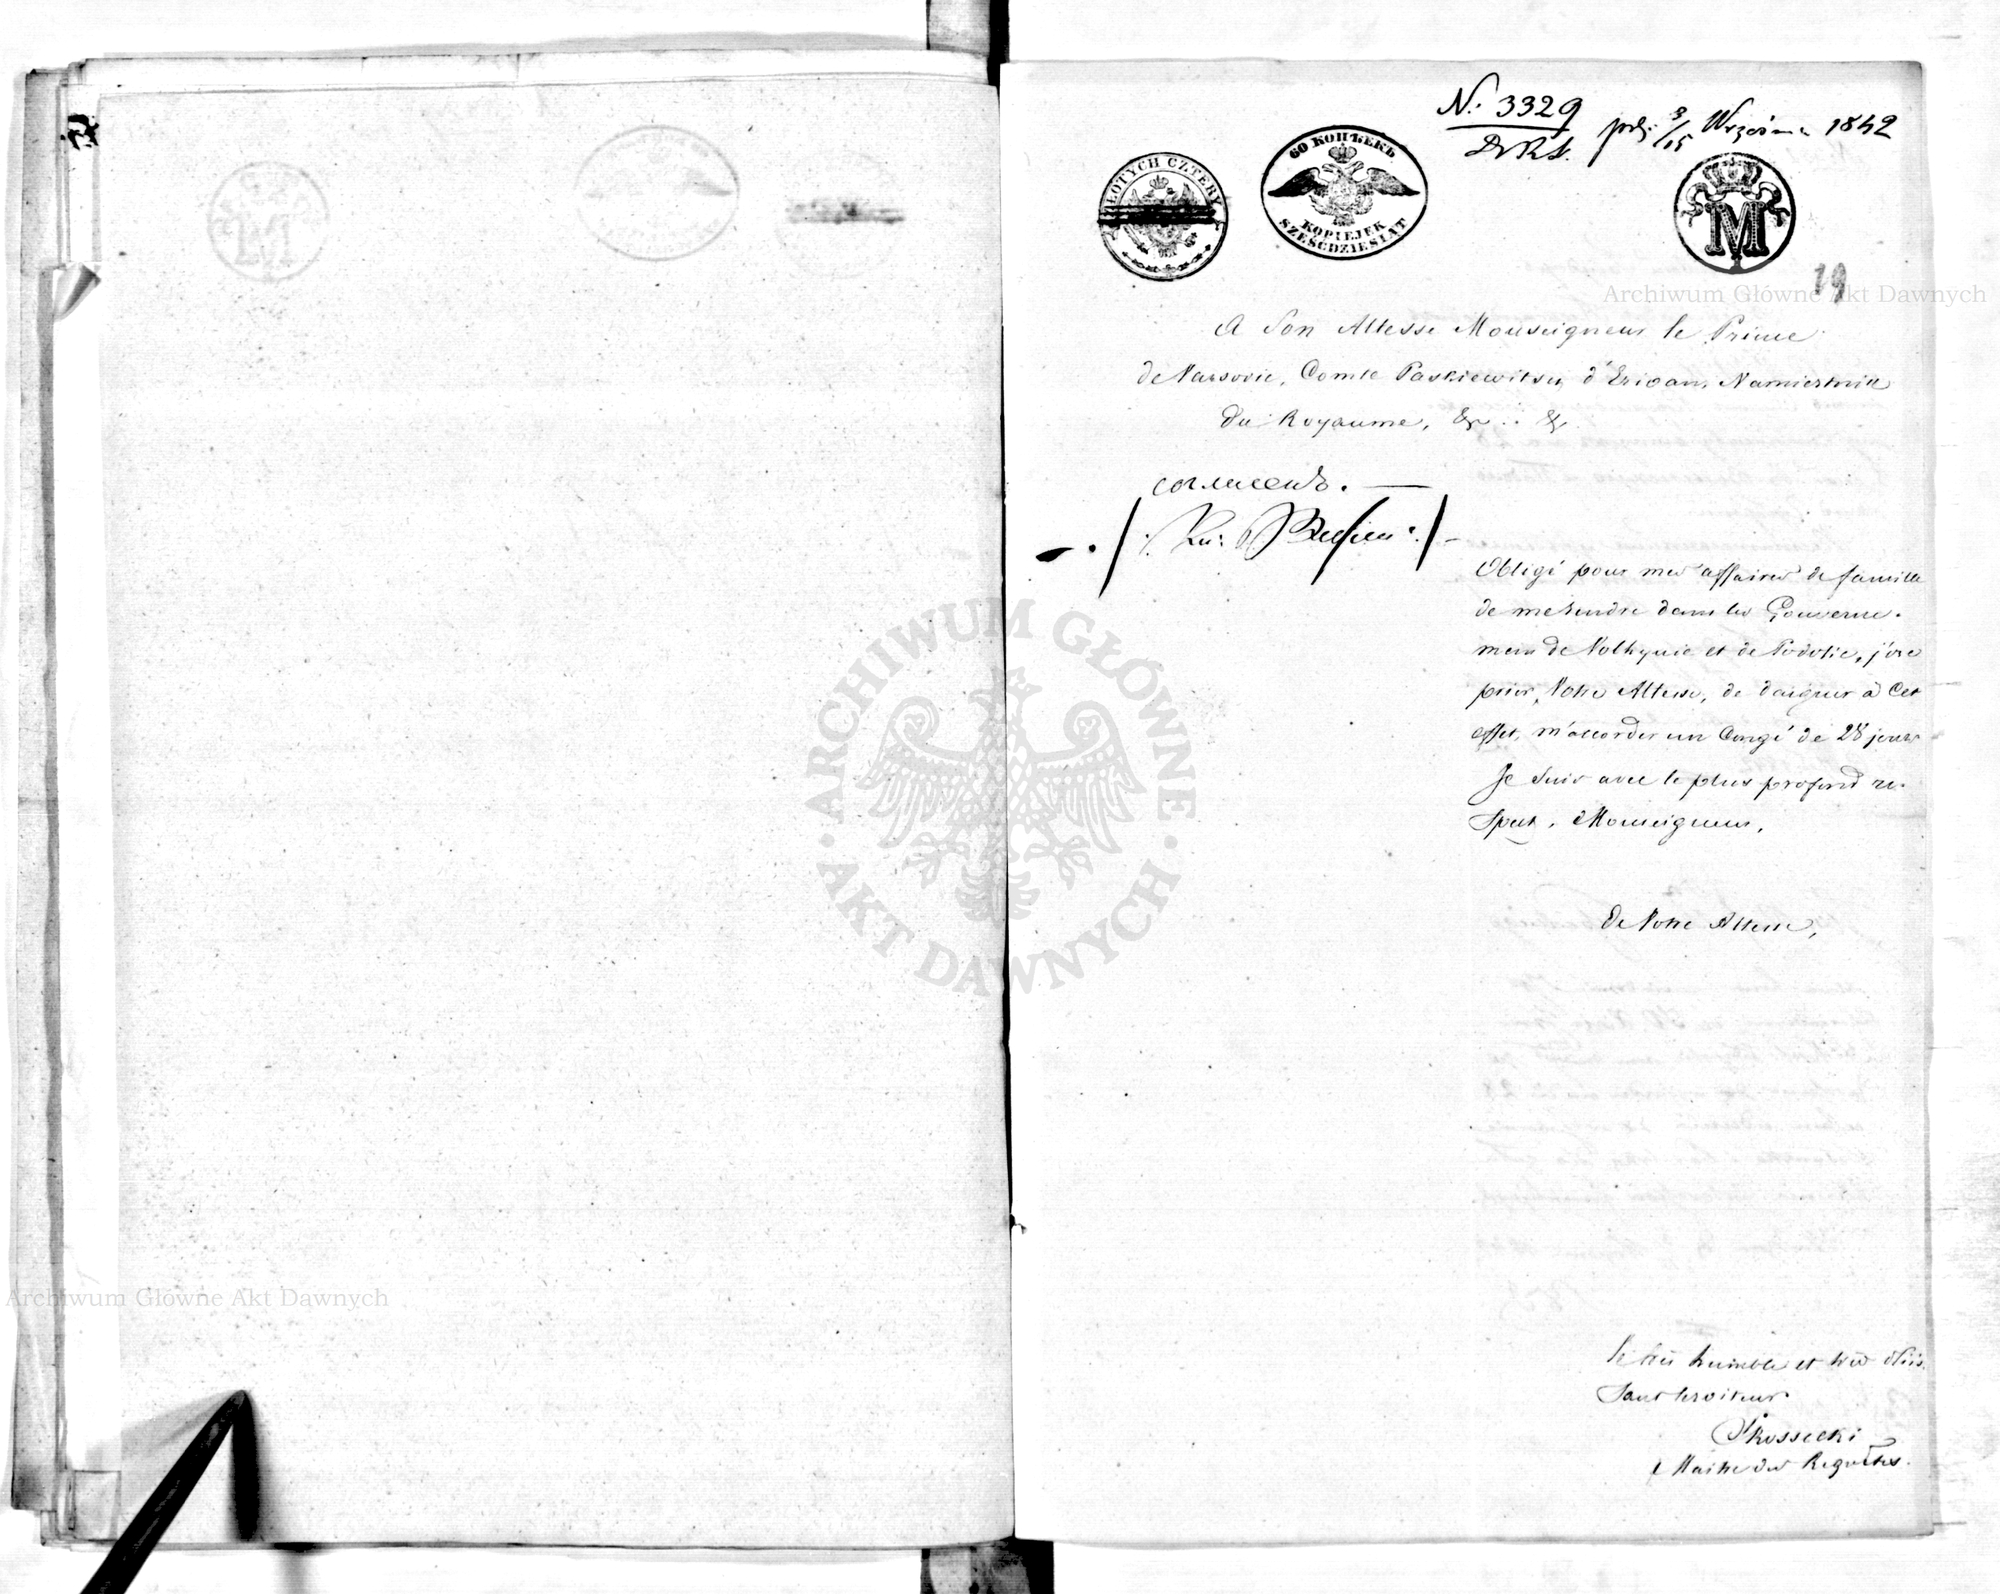 N. 3329
prez. 3/15 Września 1842
ZŁOTYCH CZTERY
60 КОПѢЕКЪ
KOPIEJEK
SZEŚĆDZIESIĄT
M
19
Archiwum Główne Akt Dawnych
A Son Altesse Monseigneur le Prince
de Varsovie, Comte Paskiewitsch d'Erivan, Namiestnik
du Royaume, &. . &.
согласенъ. —
Obligé pour mes affaires de famille
de me rendre dans les Gouverne-
mens de Volhynie et de Podolie, j'ose
prier, Votre Altesse, de daigner à cet
effet, m'accorder un Congé de 28 jours
Je suis avec le plus profond re-
spect, Monseigneur,
de Votre Altesse,
le très humble et très obéis-
sant serviteur
Maitre des Requêtes.
ARCHIWUM GŁÓWNE
AKT DAWNYCH
Archiwum Główne Akt Dawnych